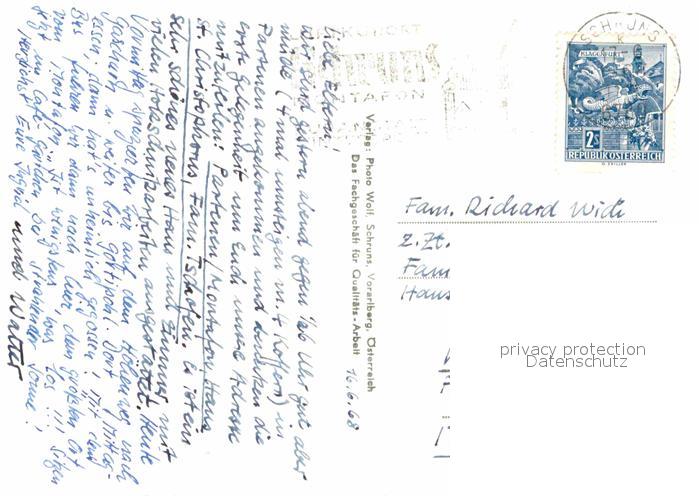 Liebe Eltern!
Wir sind gestern abend gegen ½6 Uhr gut aber
müde (4 × umsteigen m. 4 Koffern) in
Partenen angekommen und benützen die
erste Gelegenheit um Euch unsere Adresse
mitzuteilen: Partenen/Montafon Haus
St. Christophorus Fam. Tschofen. Es ist ein
sehr schönes neues Haus u. Zimmer mit
vielen Holzschnitzarbeiten ausgestattet. Heute
Vormittag spazierten wir auf dem nach
Gaschurn u. weiter bis Gortipohl. Dort Mittag-
essen, dann hat's unheimlich gegossen! Mit dem
Bus fuhren wir dann nach hier den größten Ort
vom Montafon. Ist wenigstens was los!!! Sitzen
jetzt im Café-Garten bei strahlender Sonne!
Herzlichst Eure Sigrid
und Walter
16.6.68
Verlag: Photo Wolf, Schruns, Vorarlberg, Österreich
Das Fachgeschäft für Qualitäts-Arbeit
KURORT
SCHRUNS
MONTAFON
SCHRUNS
KLAGENFURT
2S
REPUBLIK ÖSTERREICH
Fam. Richard Wich
z. Zt.
Fam
Haus
privacy protection
Datenschutz